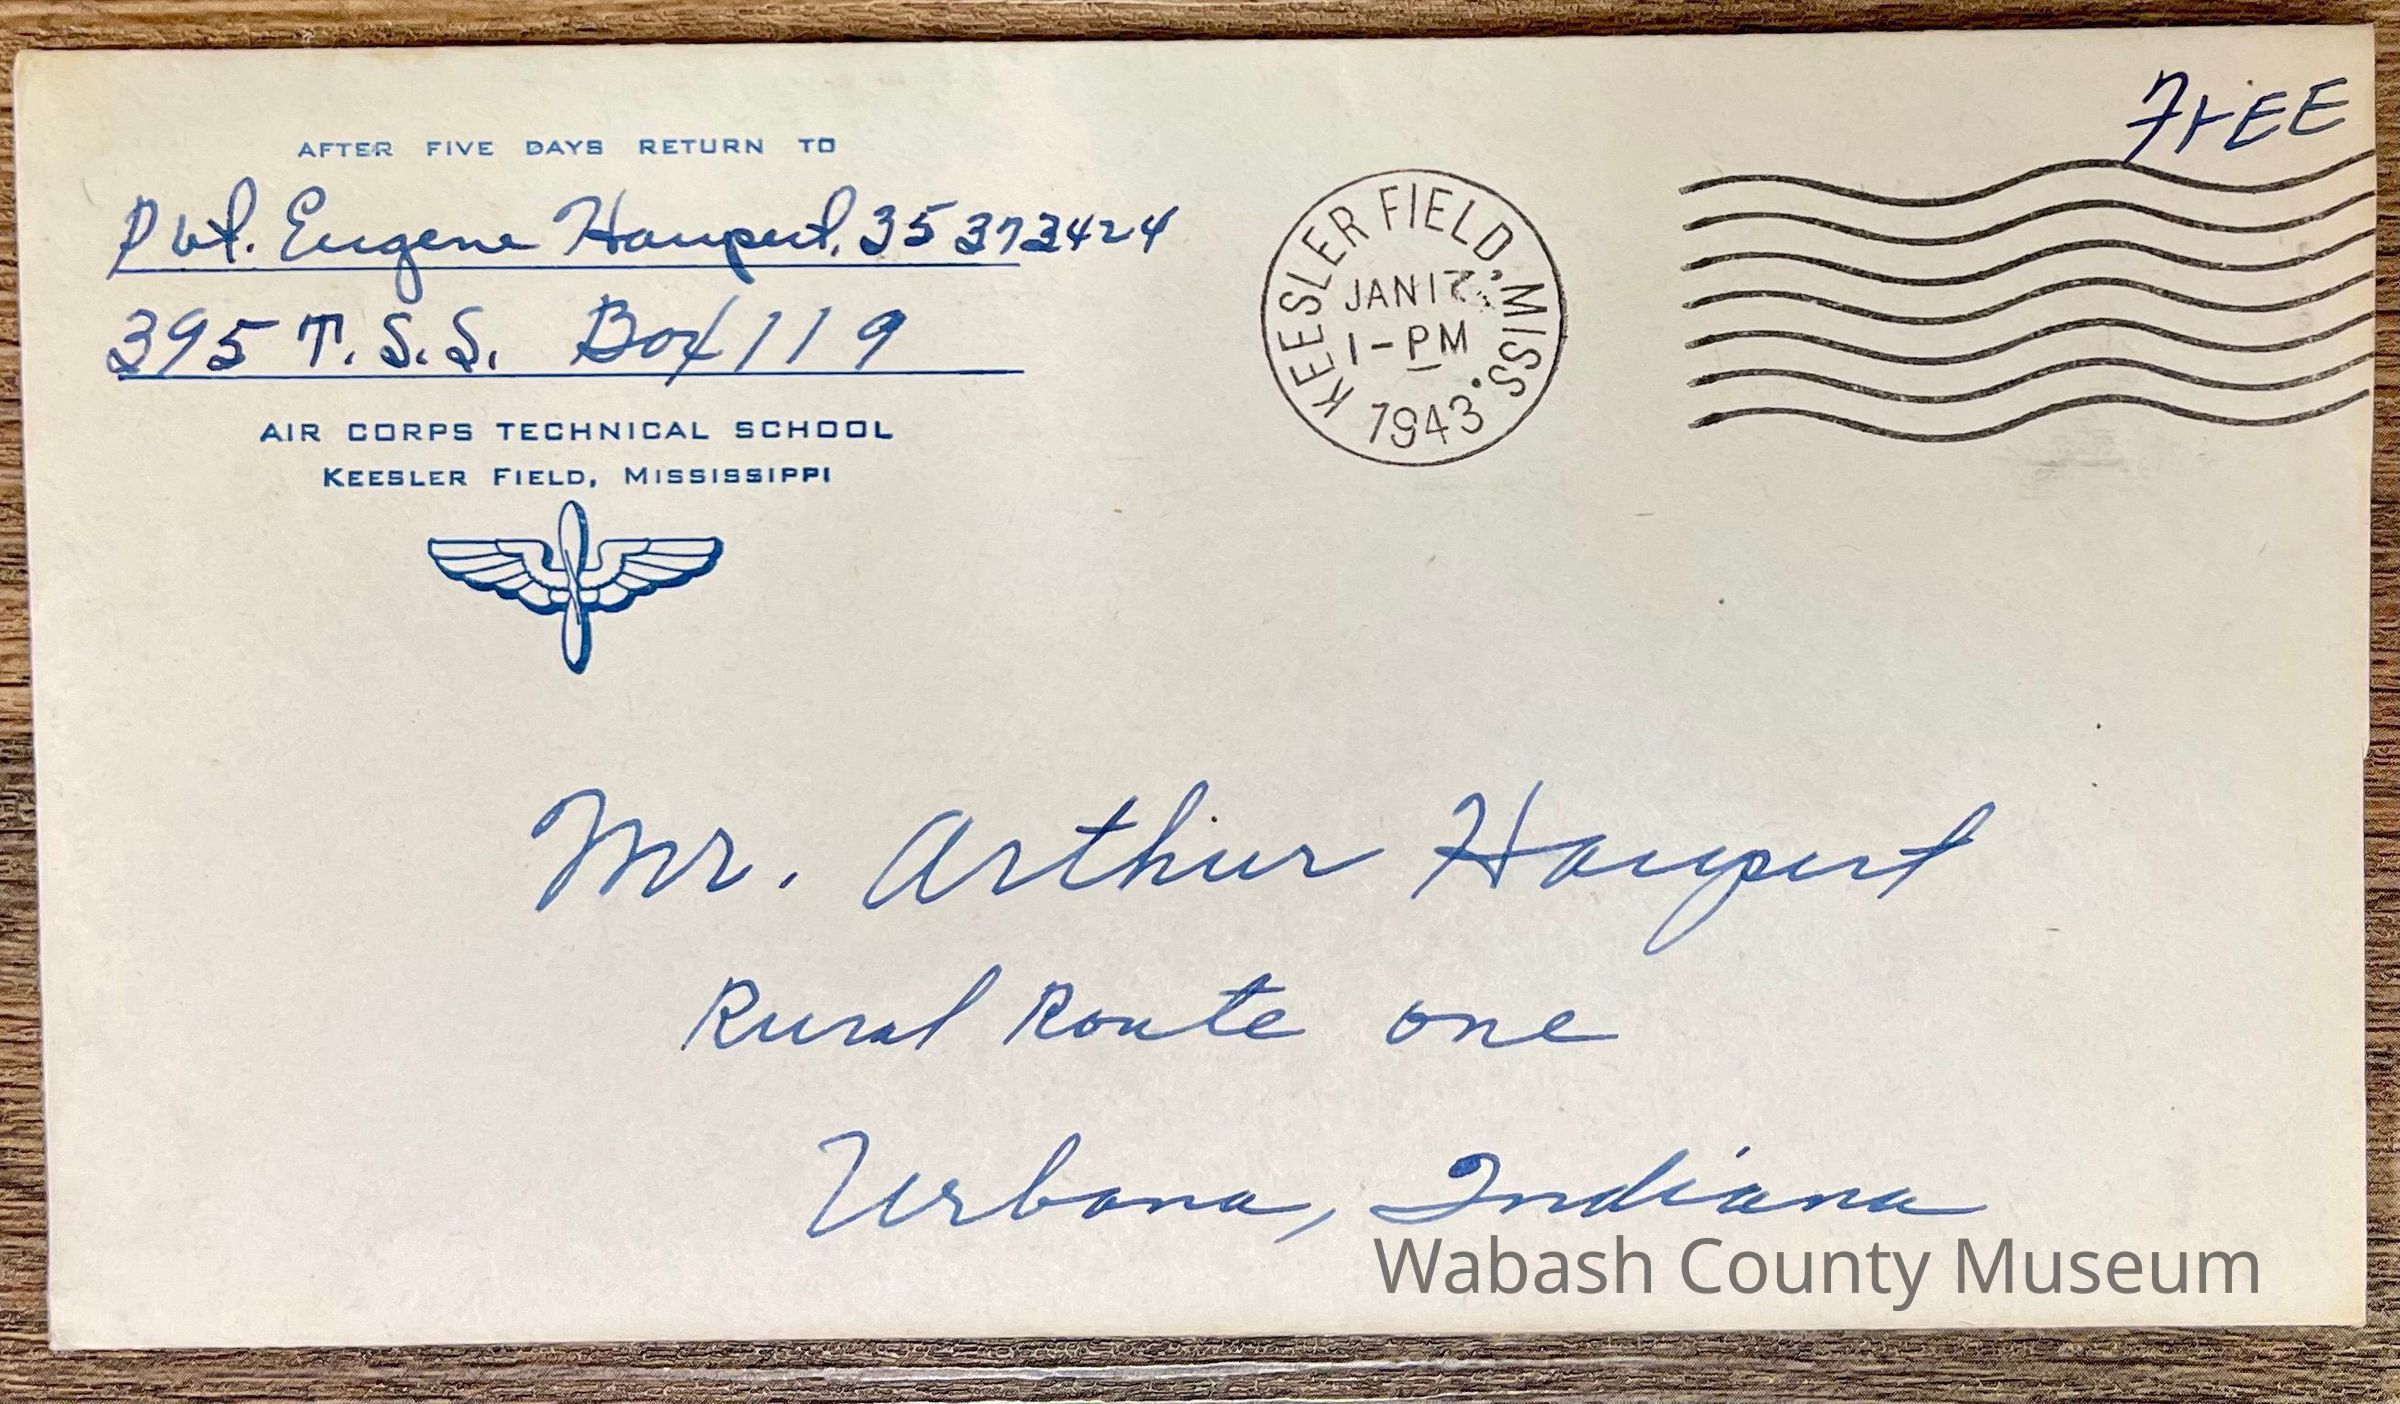 FrEE
AFTER FIVE DAYS RETURN TO
Pvt. Eugene Haupert. 35373424
395 T.S.S. Box 119
AIR CORPS TECHNICAL SCHOOL
KEESLER FIELD, MISSISSIPPI
KEESLER FIELD, MISS.
JAN 17
1-PM
1943
Mr. Arthur Haupert
Rural Route one
Urbana, Indiana
Wabash County Museum